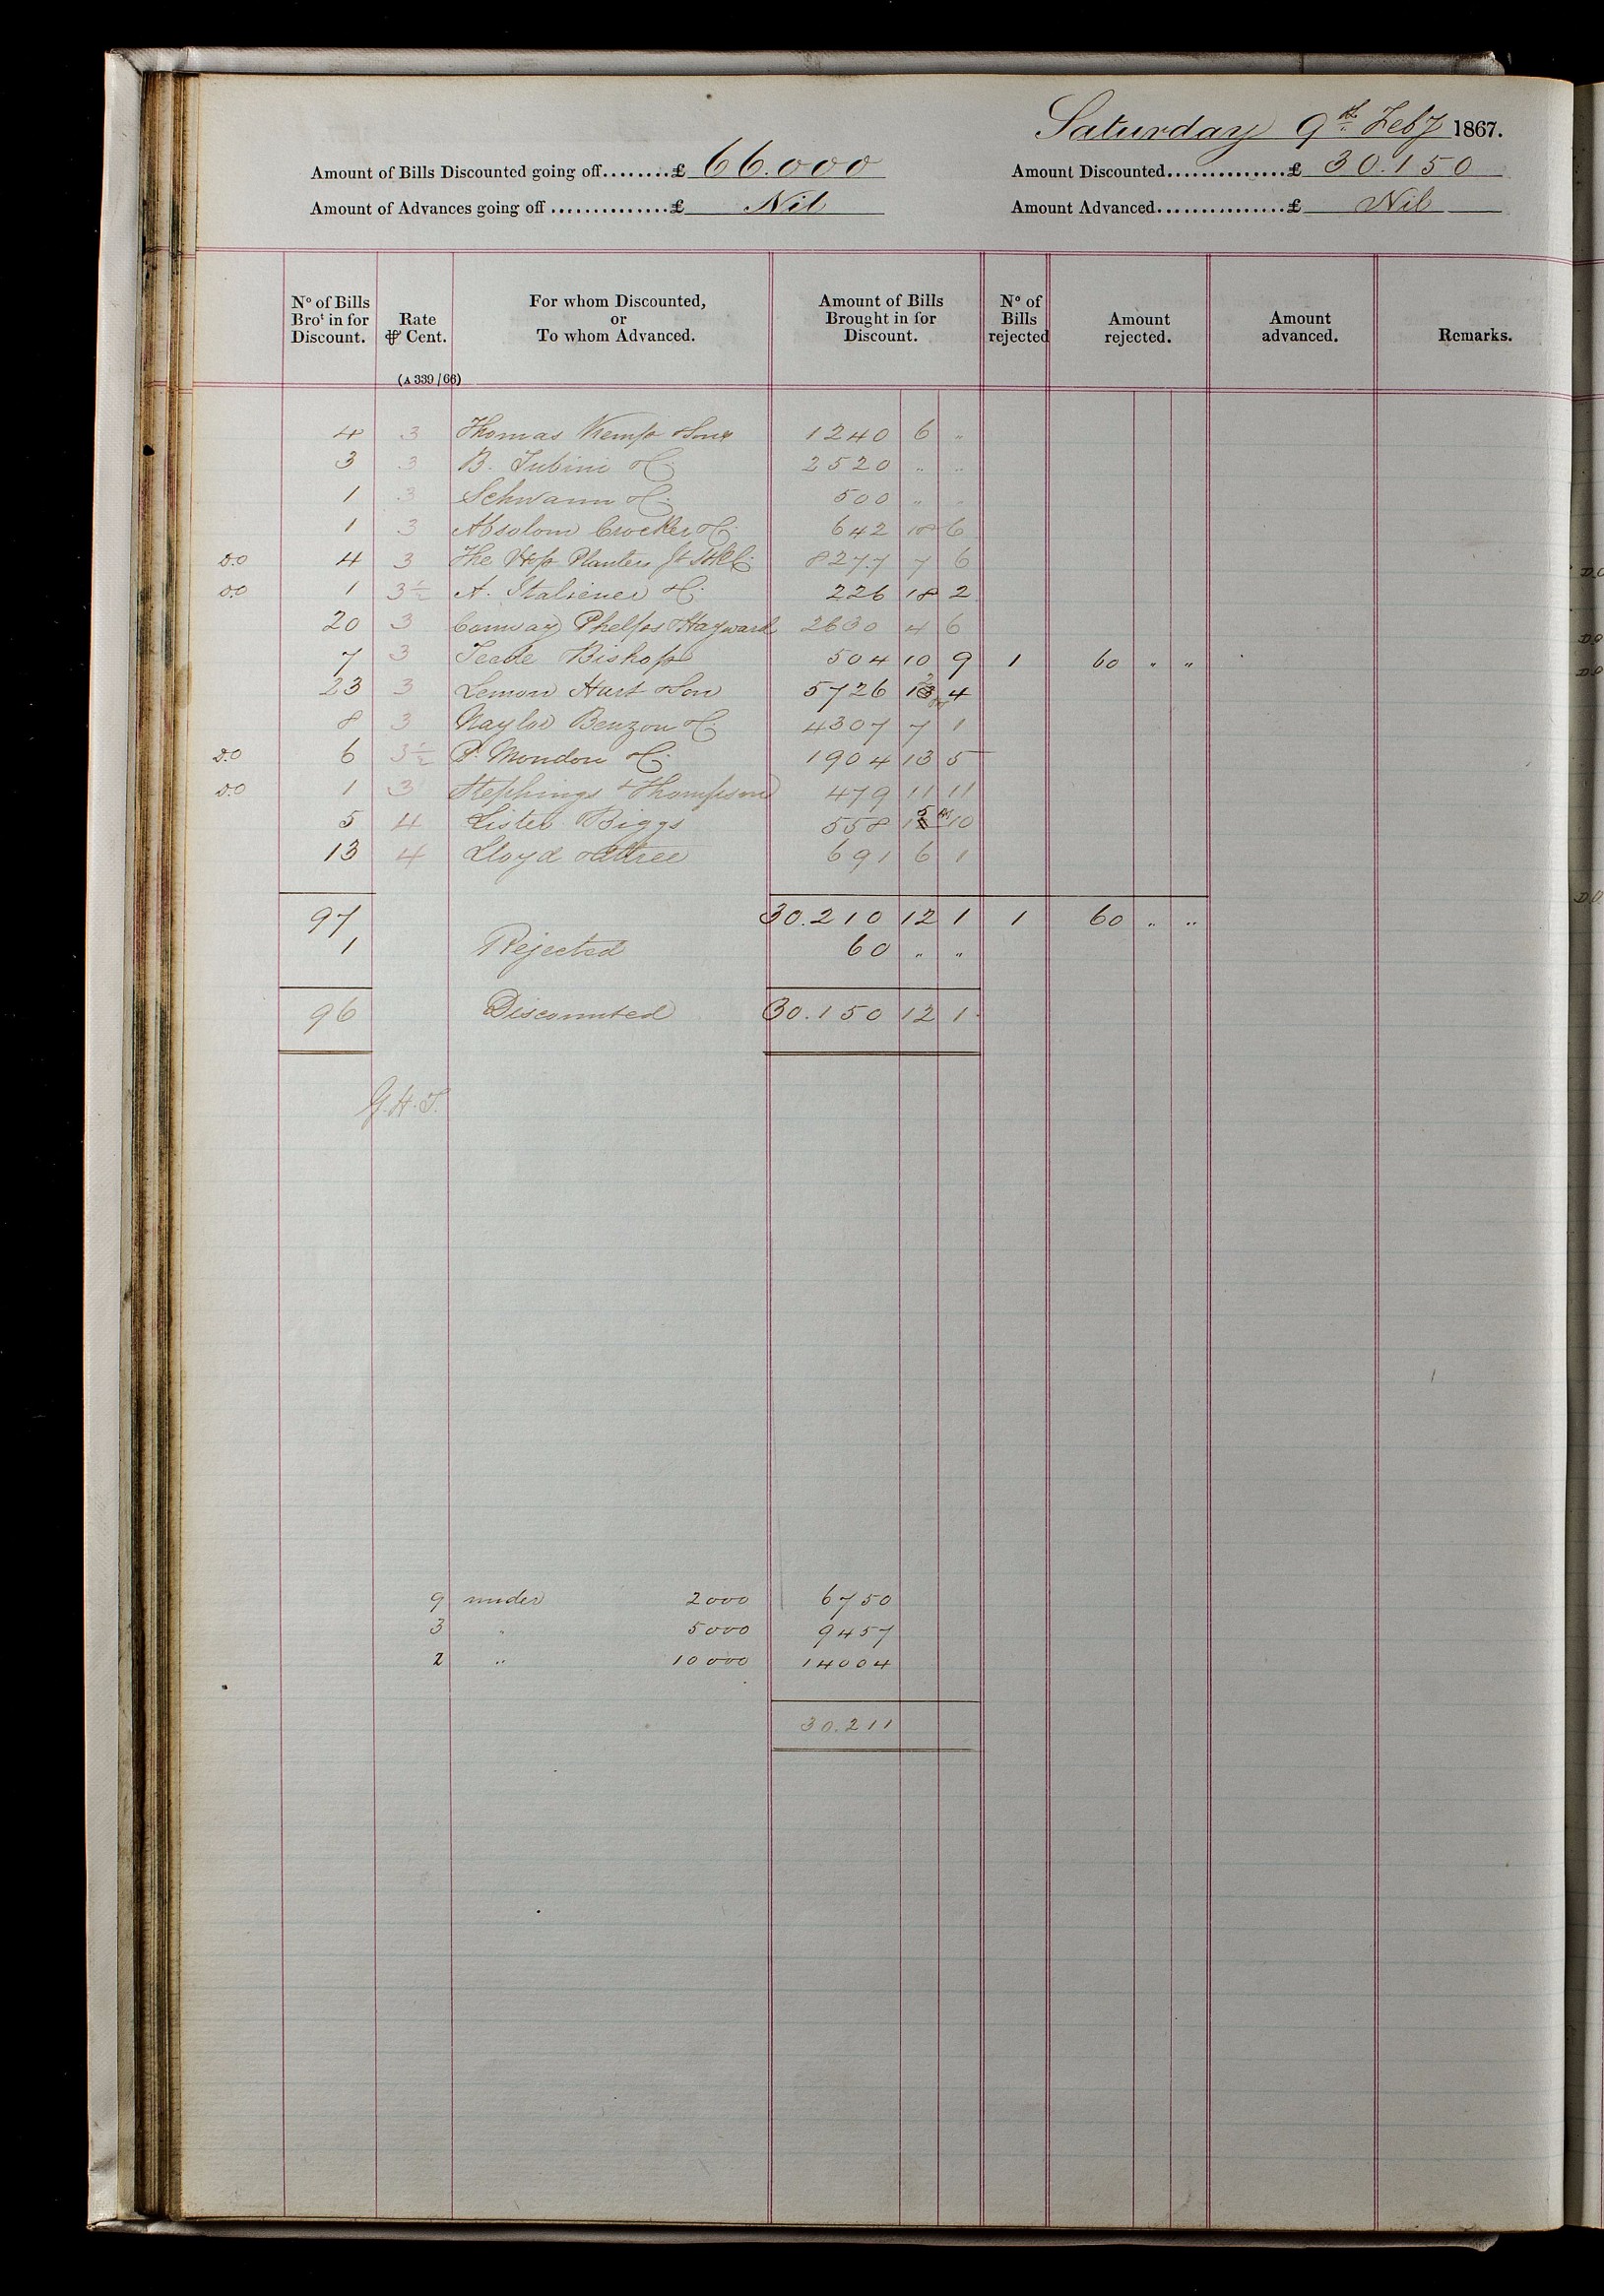 Saturday 9th Feby 1867.
Amount of Bills Discounted going off........£ 66.000 Amount Discounted..............£ 30.150
Amount of Advances going off..............£ Nil Amount Advanced................£ Nil
No of Bills Brot in for Discount. Rate ⅌ Cent. For whom Discounted, or To whom Advanced. Amount of Bills Brought in for Discount. No of Bills rejected Amount rejected. Amount advanced. Remarks.
(A 339/66)
4 3 Thomas Kemp & Sons 1240 6 "
3 3 B. Tubini & Co 2520 " "
1 3 Schwann & Co 500 " "
1 3 Absolom Crocker & Co 642 18 6
D.O 4 3 The Hop Planters Jt Stk Co 8277 7 6
D.O 1 3½ A. Italiener & Co 226 18 2
20 3 Conway Phelps Hayward 2630 4 6
7 3 Teede Bishop 504 10 9 1 60 " "
23 3 Lemon Hart & Son 5726 4
8 3 Naylor Benzon & Co 4307 7 1
D.O 6 3½ P. Mondon & Co 1904 13 5
D.O 1 3 Stephings & Thompson 479 11 11
5 4 Lister Biggs 558 15 10
13 4 Lloyd & Attree 691 6 1
97 30.210 12 1 1 60 " "
1 Rejected 60 " "
96 Discounted 30.150 12 1
G.H.T.
9 under 2000 6750
3 " 5000 9457
2 " 10000 14004
30.211